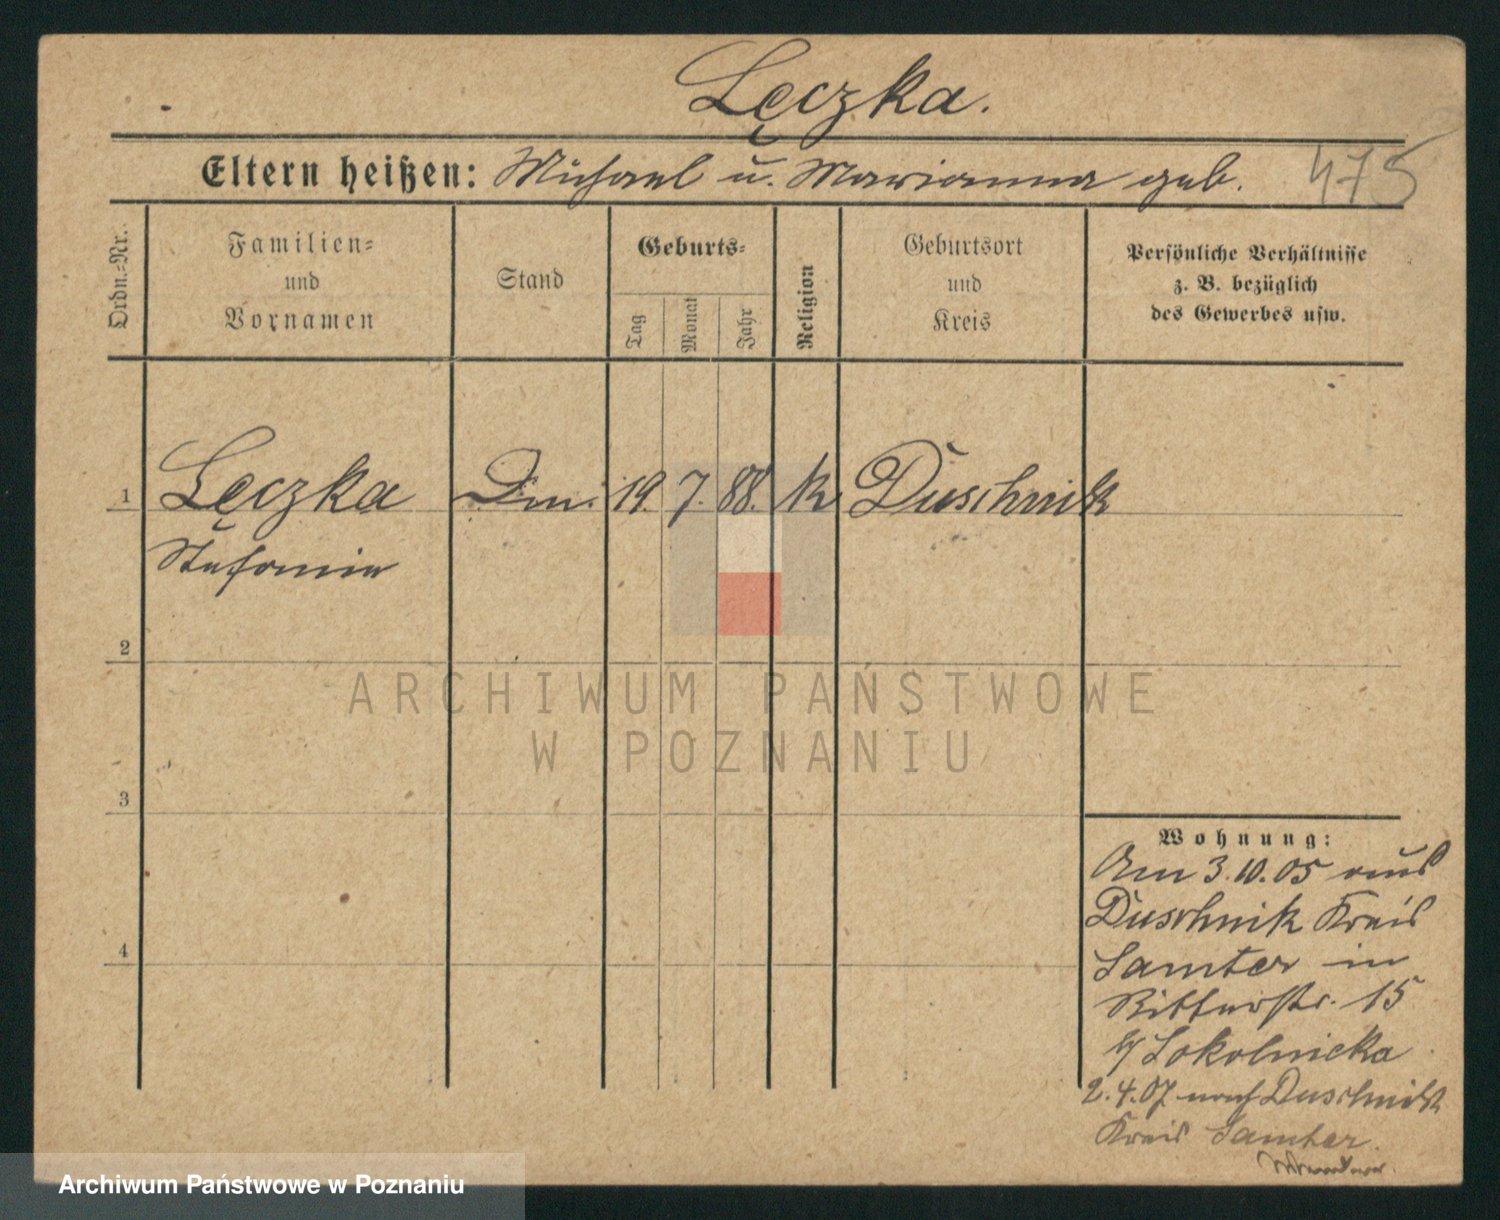 Lęczka.
Eltern heißen: Michael u. Marianna geb. 475
Ordn.-Nr.
Familien-
und
Vornamen
Stand
Geburts-
Tag
Monat
Jahr
Religion
Geburtsort
und
Kreis
Persönliche Verhältnisse
z. B. bezüglich
des Gewerbes usw.
1 Lęczka 19. 7. 88. k Duschnik
Stefania
2
ARCHIWUM PAŃSTWOWE
W POZNANIU
3
4
Wohnung:
Am 3.10.05 aus
Duschnik Kreis
Samter in
Ritterstr. 15
b/ Sokolnicka
2.4.07 nach Duschnik
Kreis Samter.
Archiwum Państwowe w Poznaniu